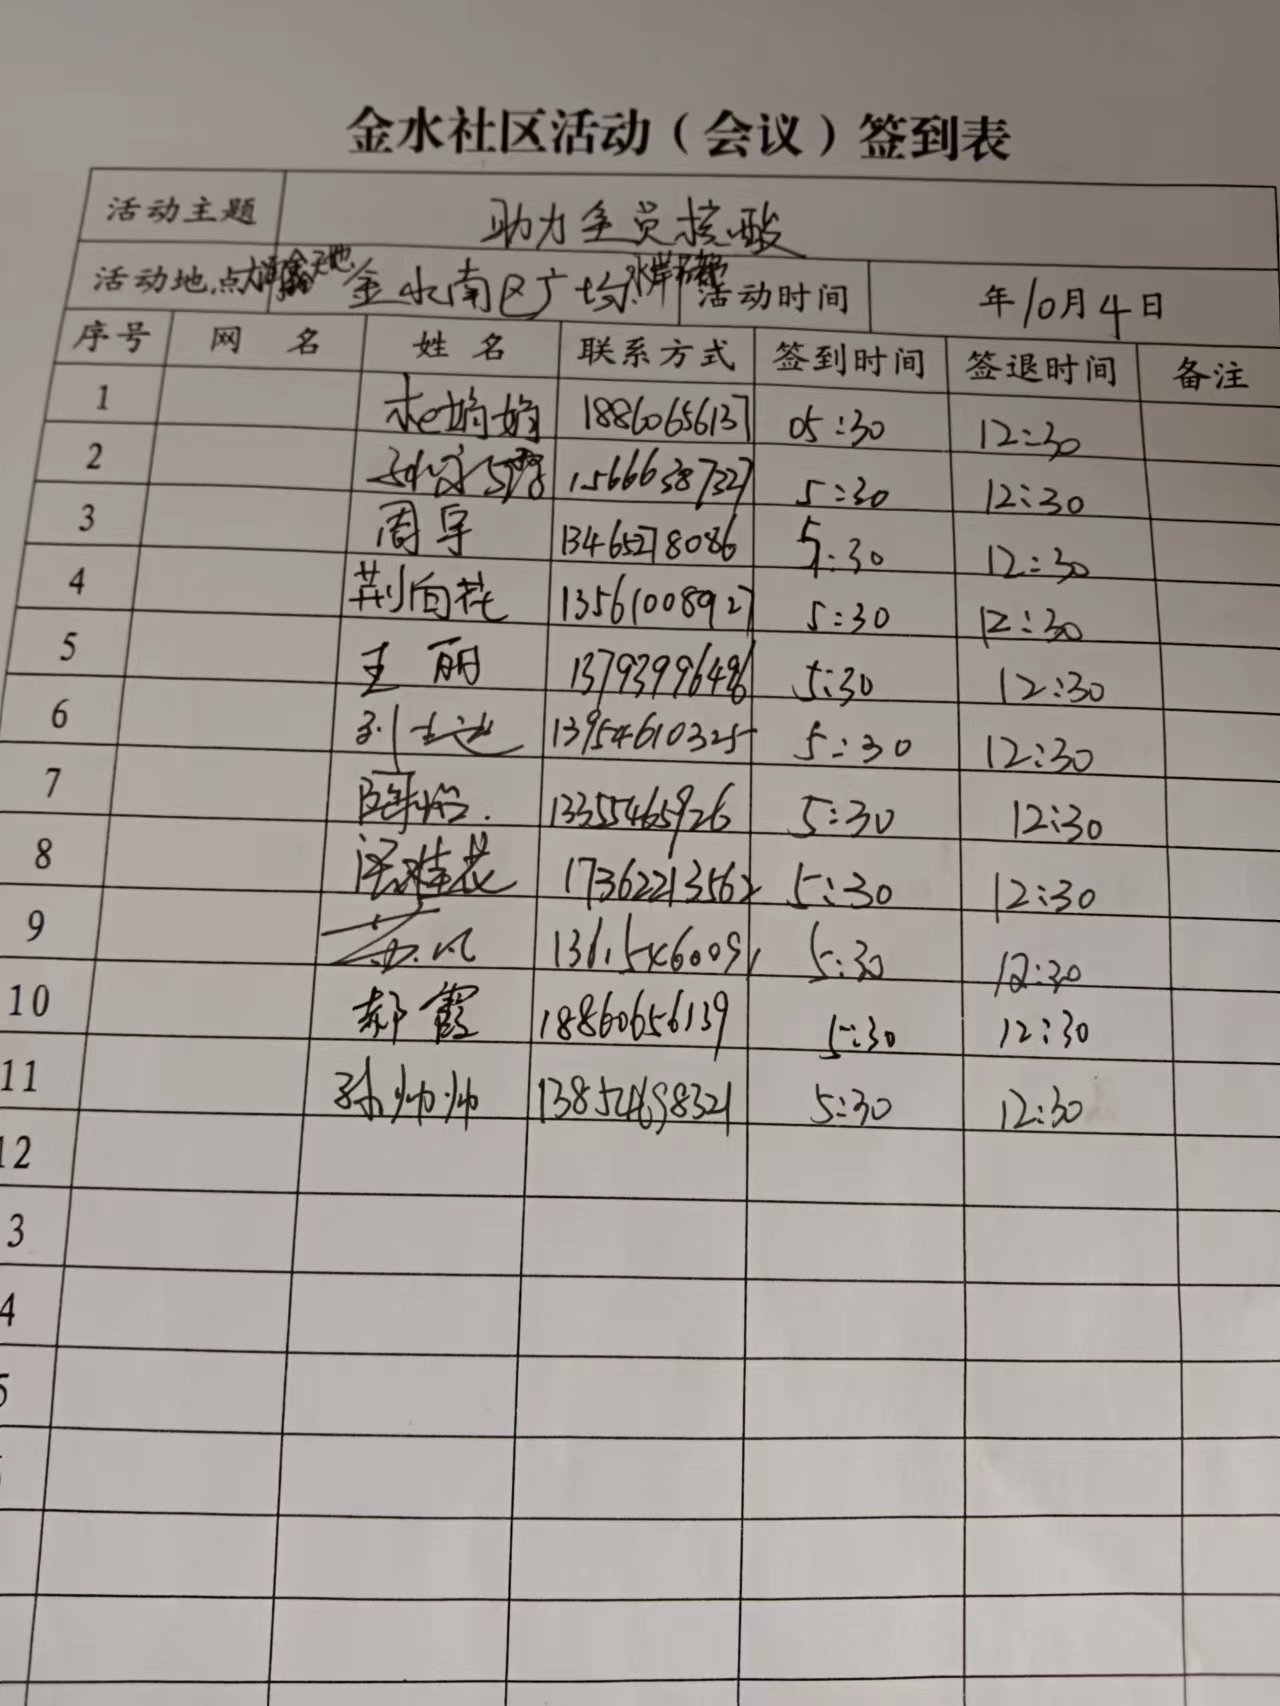 金水社区活动（会议）签到表
活动主题 助力全员核酸
活动地点 金水南区广场 活动时间 年10月4日
序号 网名 姓名 联系方式 签到时间 签退时间 备注
1 娟娟 18860656137 05:30 12:30
2 15666387327 5:30 12:30
3 周宇 13465278086 5:30 12:30
4 荆向花 13561008927 5:30 12:30
5 王丽 13793996486 5:30 12:30
6 刘 13954610325 5:30 12:30
7 13355465926 5:30 12:30
8 桂花 17362213562 5:30 12:30
9 5:30 12:30
10 郝霞 18860656139 5:30 12:30
11 孙帅帅 13854698321 5:30 12:30
12
3
4
5